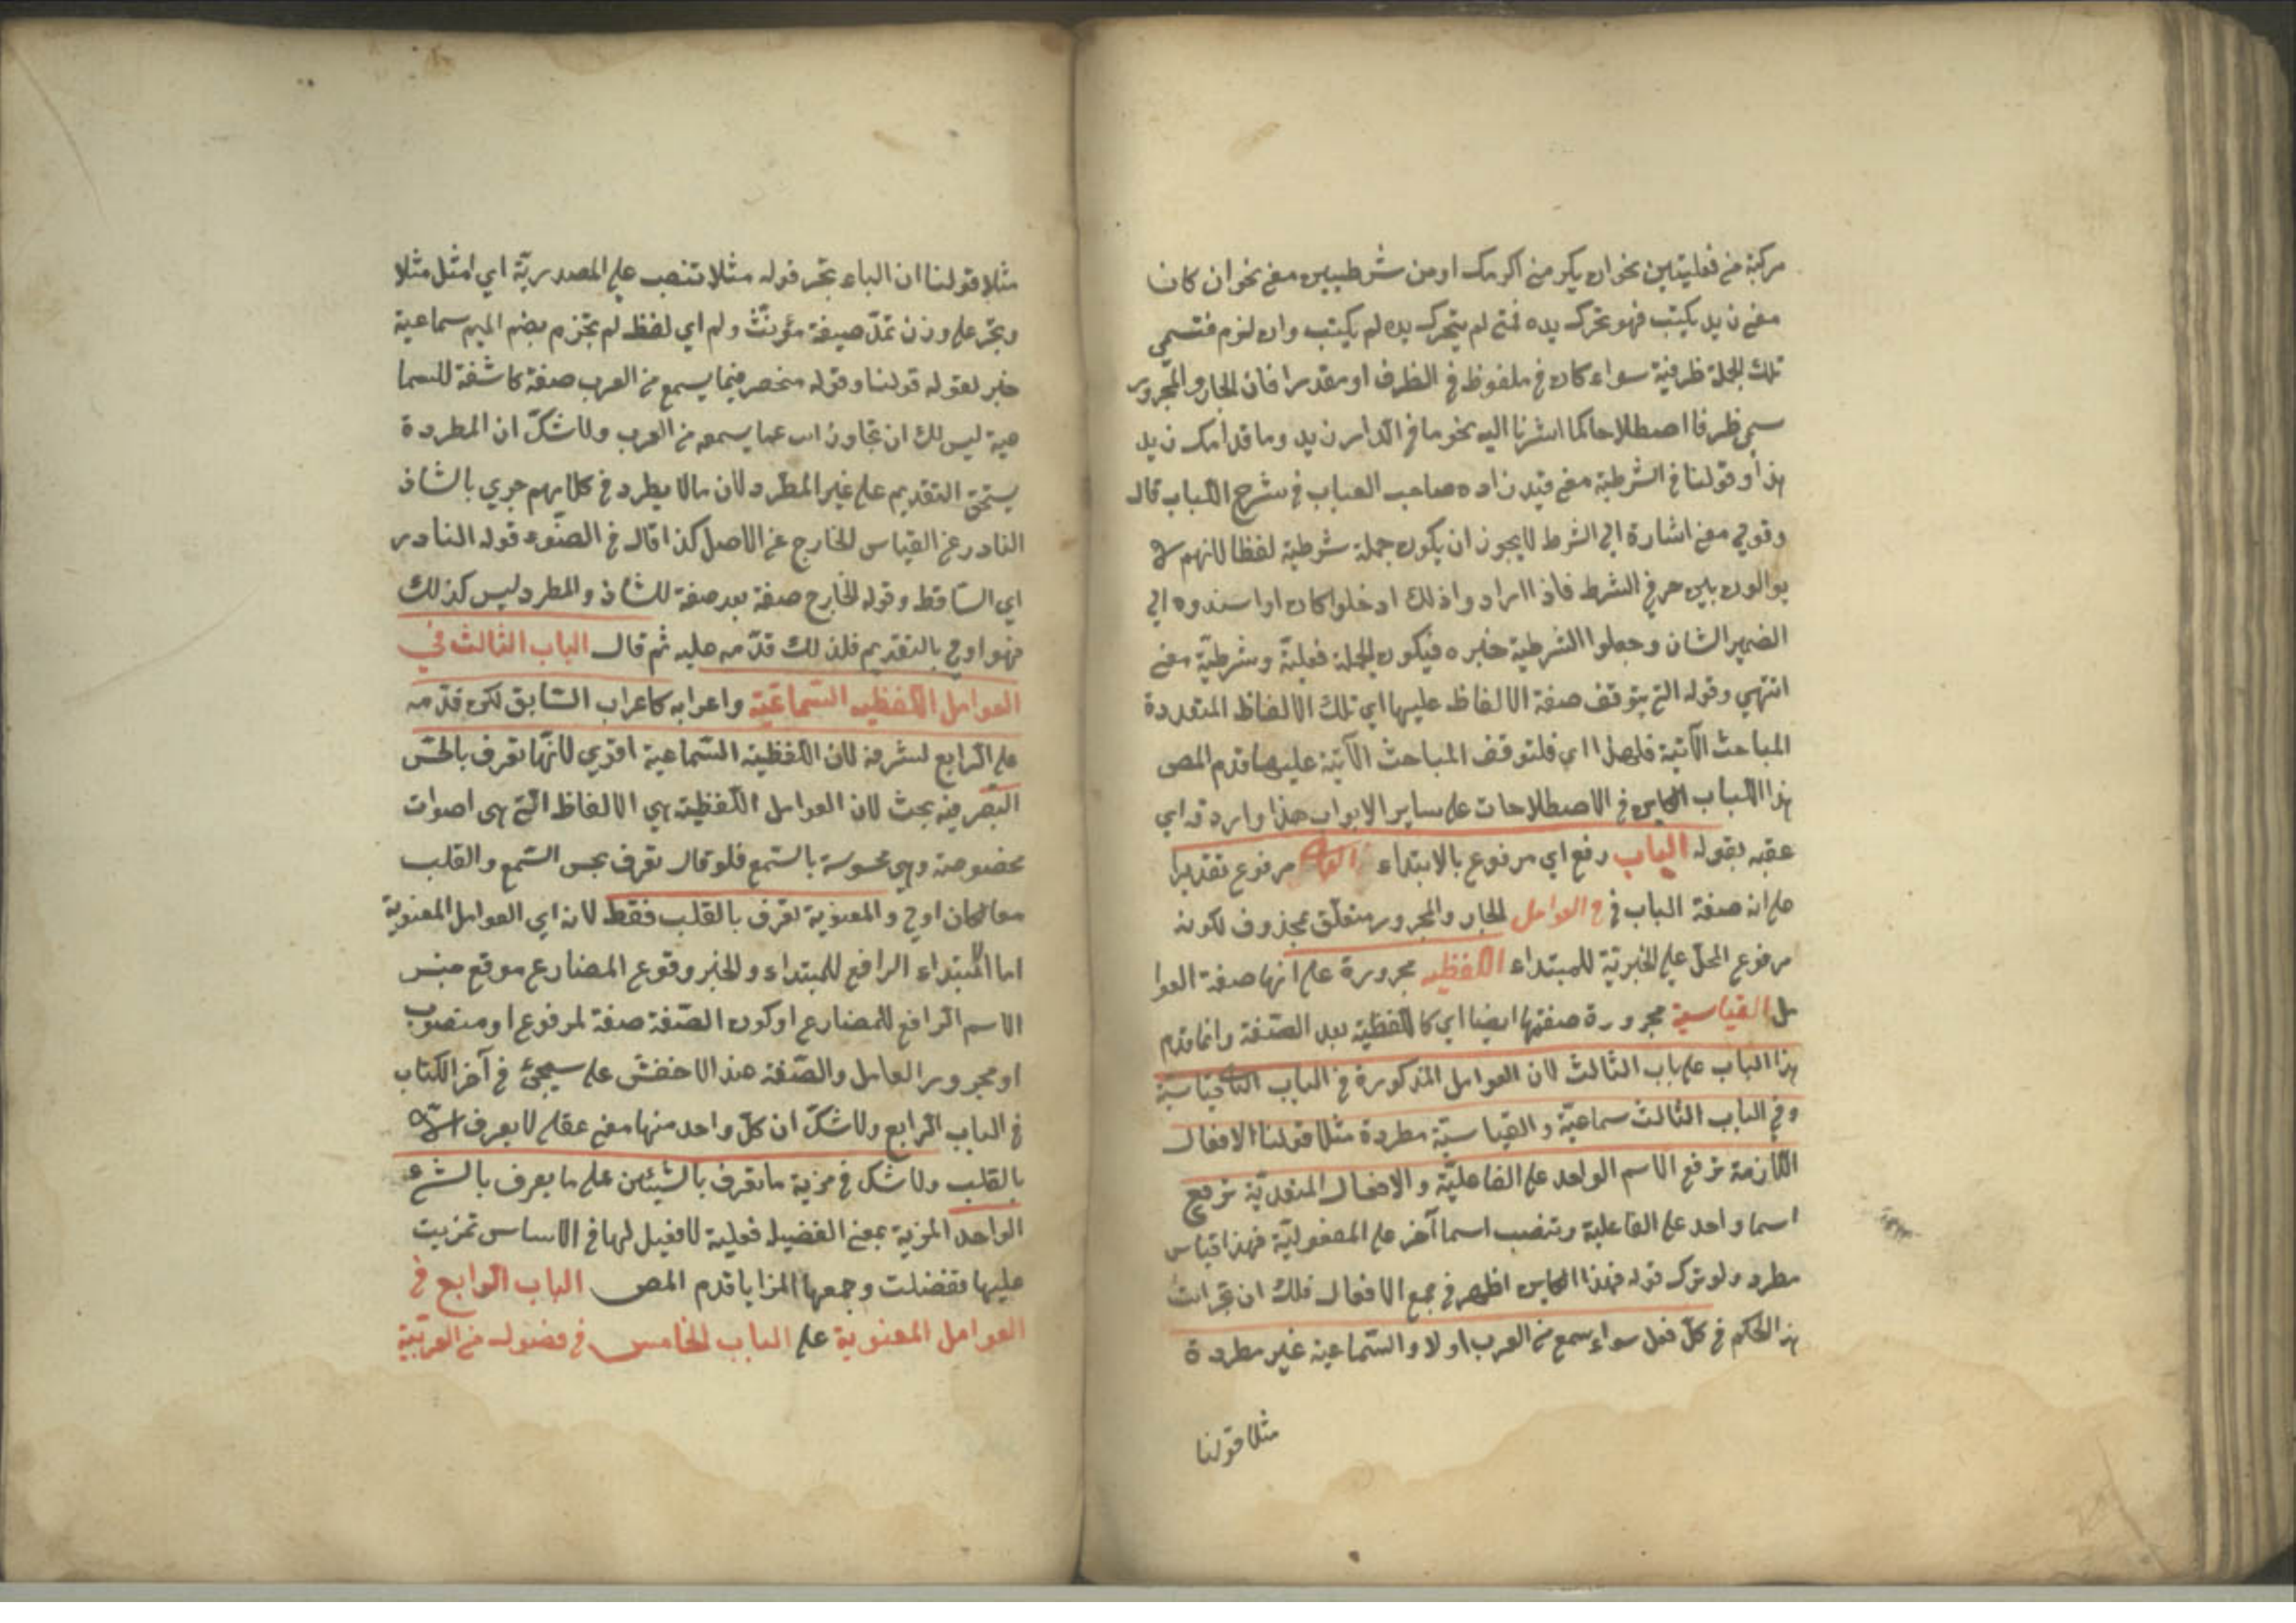 مركبة من فعليتين نحو ان يكرمني اكرمك او من شرطيين معنى نحو ان كان
معنى زيد يكتب فهو تحرك يده فمتى لم يتحرك يده لم يكتب وان لزم فتسمى
تلك الجملة ظرفية سواء كان ملفوظ في الظرف او مقدرا فان الجار والمجرور
سمي ظرفا اصطلاحا كما اشرنا اليه نحو ما في الدار زيد وما قدامك زيد
هذا وقولنا في الشرطية معنى قيد زاده صاحب العباب في شرح اللباب قال
وقولي معنى اشارة الى الشرط لا يجوز ان يكون جملة شرطية لفظا لانهم لا
يوالون بين حرفي الشرط فاذا ارادوا ذلك ادخلوا كان او اسندوه الى
الضمير الشان وجعلوا الشرطية خبره فيكون الجملة فعلية وشرطية معنى
انتهى وقوله التي يتوقف صفة الالفاظ عليها اي تلك الالفاظ المتعددة
المباحث الآتية فلهذا اي فلتوقف المباحث الآتية عليها قدم المص
هذا الباب في الاصطلاحات على ساير الابواب هذا واردفه اي
عقبه بقوله الباب رفع اي مرفوع بالابتداء مرفوع تقديرا
على انه صفة الباب في العوامل الجار والمجرور متعلق بمحذوف لكونه
مرفوع المحل على الخبرية للمبتداء اللفظية مجرورة على انها صفة العوا
مل القياسية مجرورة صفتها ايضا اي كاللفظية بعد الصفة وانما قدم
هذا الباب على باب الثالث لان العوامل المذكورة في الباب الثاني قياسية
وفي الباب الثالث سماعية والقياسية مطردة مثلا قولنا الافعال
اللازمة ترفع الاسم الواحد على الفاعلية والافعال المتعدية ترفع
اسما واحد على الفاعلية وتنصب اسما آخر على المفعولية فهذا قياس
مطرد ولو ترك قوله فهذا اظهر في جمع الافعال فلك ان تجر انت
هذا الحكم في كل فعل سواء سمع من العرب او لا والسماعية غير مطردة
مثلا قولنا
مثلا قولنا ان الباء تجر قوله مثلا تنصب على المصدرية اي امثل مثلا
وتجر على وزن تمد صيغة مؤنث ولم اي لفظ لم تجزم بضم الميم سماعية
خبر لقوله قولنا وقوله منحصر فيما يسمع من العرب صفة كاشفة للسما
عية ليس لك ان تجاوز انت عما يسمعه من العرب ولا شك ان المطردة
يستحق التقديم على غير المطرد لان ما لا يطرد في كلامهم جرى بالشاذ
النادر عن القياس الخارج عن الاصل كذا قال في الضوء قوله النادر
اي الساقط وقوله الخارج صفة بعد صفة للشاذ والمطرد ليس كذلك
فهو اولى بالتقديم فلذلك قدمه عليه ثم قال الباب الثالث في
العوامل اللفظية السماعية واعرابه كاعراب السابق لكن قدمه
على الرابع لشرفه لان اللفظية السماعية اقوى لانها تعرف بالحس
البصر فيه بحث لان العوامل اللفظية هي الالفاظ التي هى اصوات
مخصوصة وهي محسوسة بالسمع فلو قال تعرف بحس السمع والقلب
معا لكان اولى والمعنوية تعرف بالقلب فقط لانه اي العوامل المعنوية
اما الابتداء الرافع للمبتداء والخبر وقوع المضارع موقع جنس
الاسم الرافع للمضارع او كون الصفة صفة لمرفوع او منصوب
او مجرور العامل والصفة عند الاخفش على سيجئ في آخر الكتاب
في الباب الرابع ولا شك ان كل واحد منها معنى عقلي لا يعرف الا
بالقلب ولا شك في مزية ما تعرف بالشيئين على ما يعرف بالشئ
الواحد المزية بمعنى الفضيلة فعيلة لا فعيل لها في الاساس تمزيت
عليها تفضلت وجمعها المزايا قدم المص الباب الرابع في
العوامل المعنوية على الباب الخامس في فصول من العربية